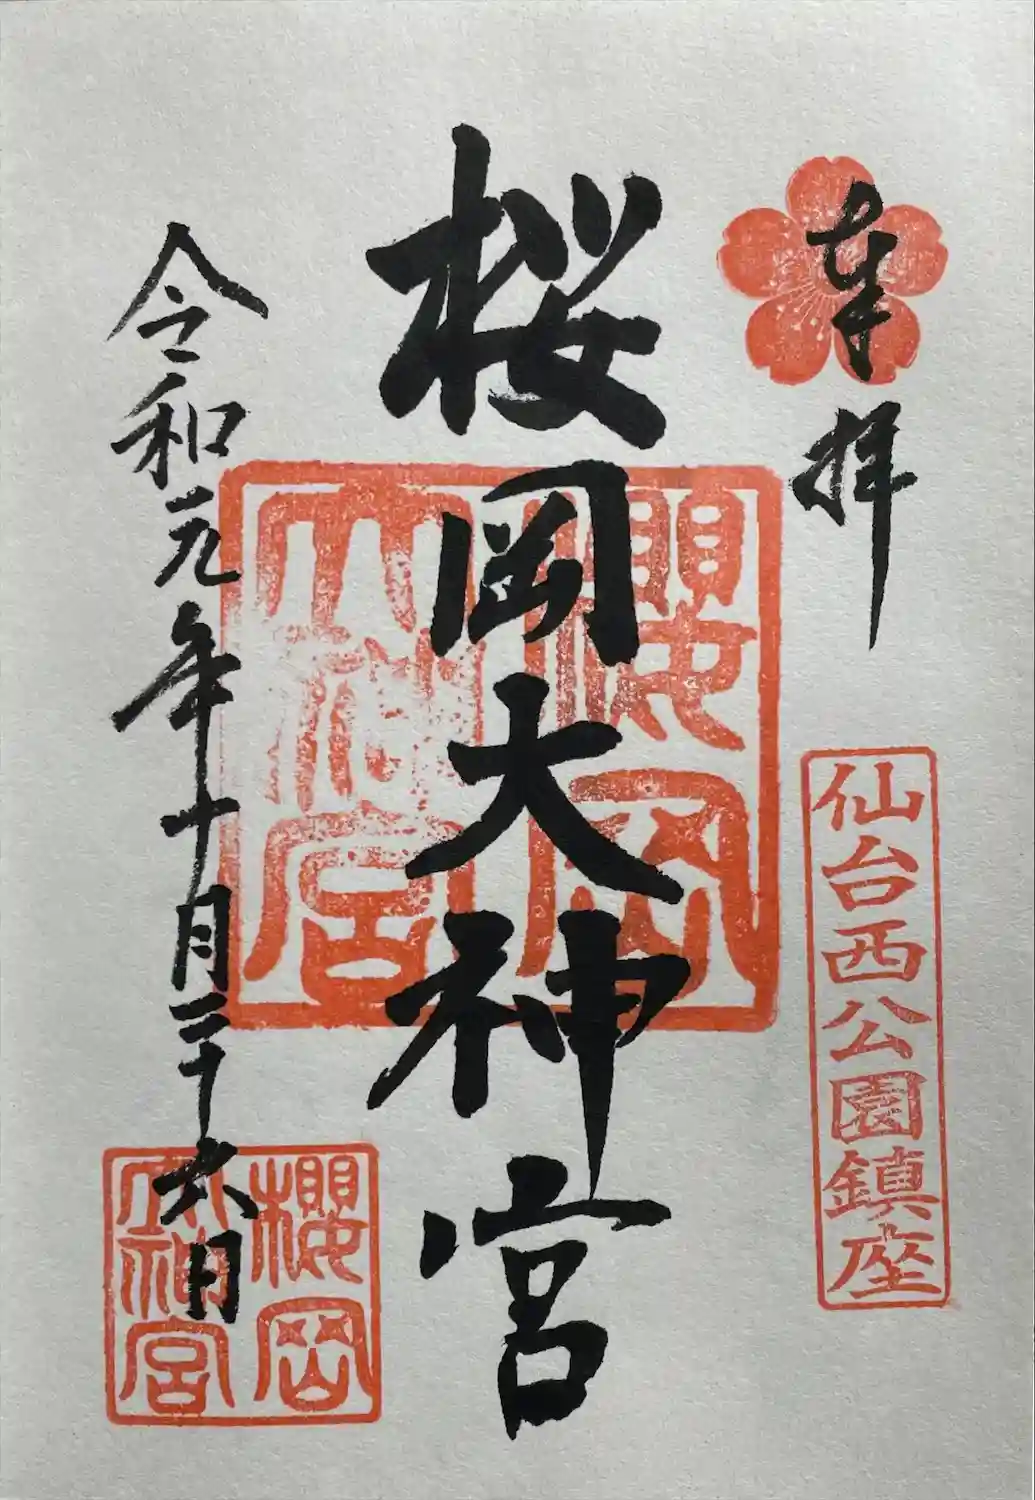 奉拝
仙台西公園鎮座
桜岡大神宮
櫻岡
大神宮
令和元年十月二十六日
櫻岡
大神宮